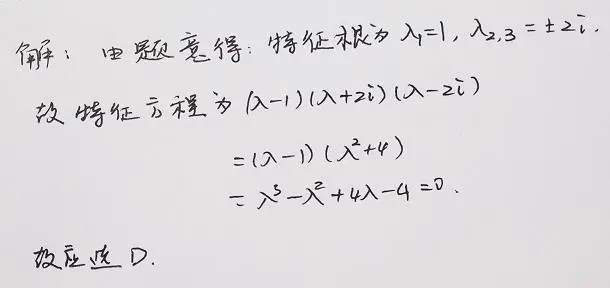 解：由题意得：特征根为 λ₁=1, λ₂,₃=±2i.
故特征方程为 (λ-1)(λ+2i)(λ-2i)
=(λ-1)(λ²+4)
=λ³-λ²+4λ-4=0.
故应选 D.